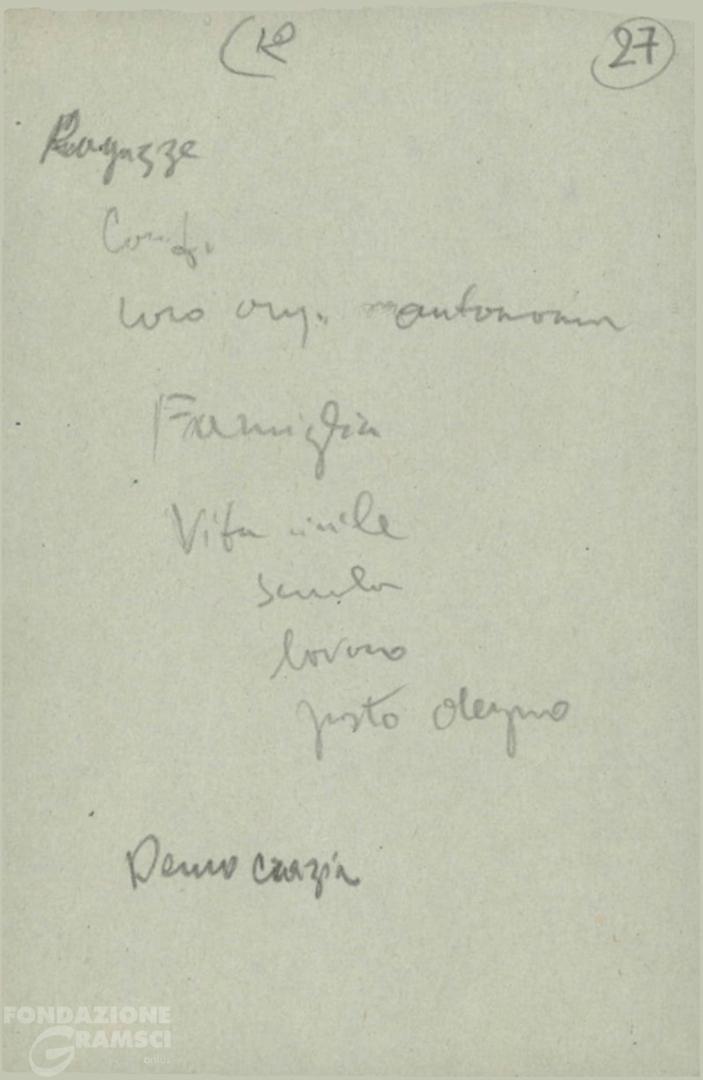 27
Ragazze
Conf.
loro org. autonomia
Famiglia
Vita civile
scuola
lavoro
posto degno
Democrazia
FONDAZIONE
GRAMSCI
onlus